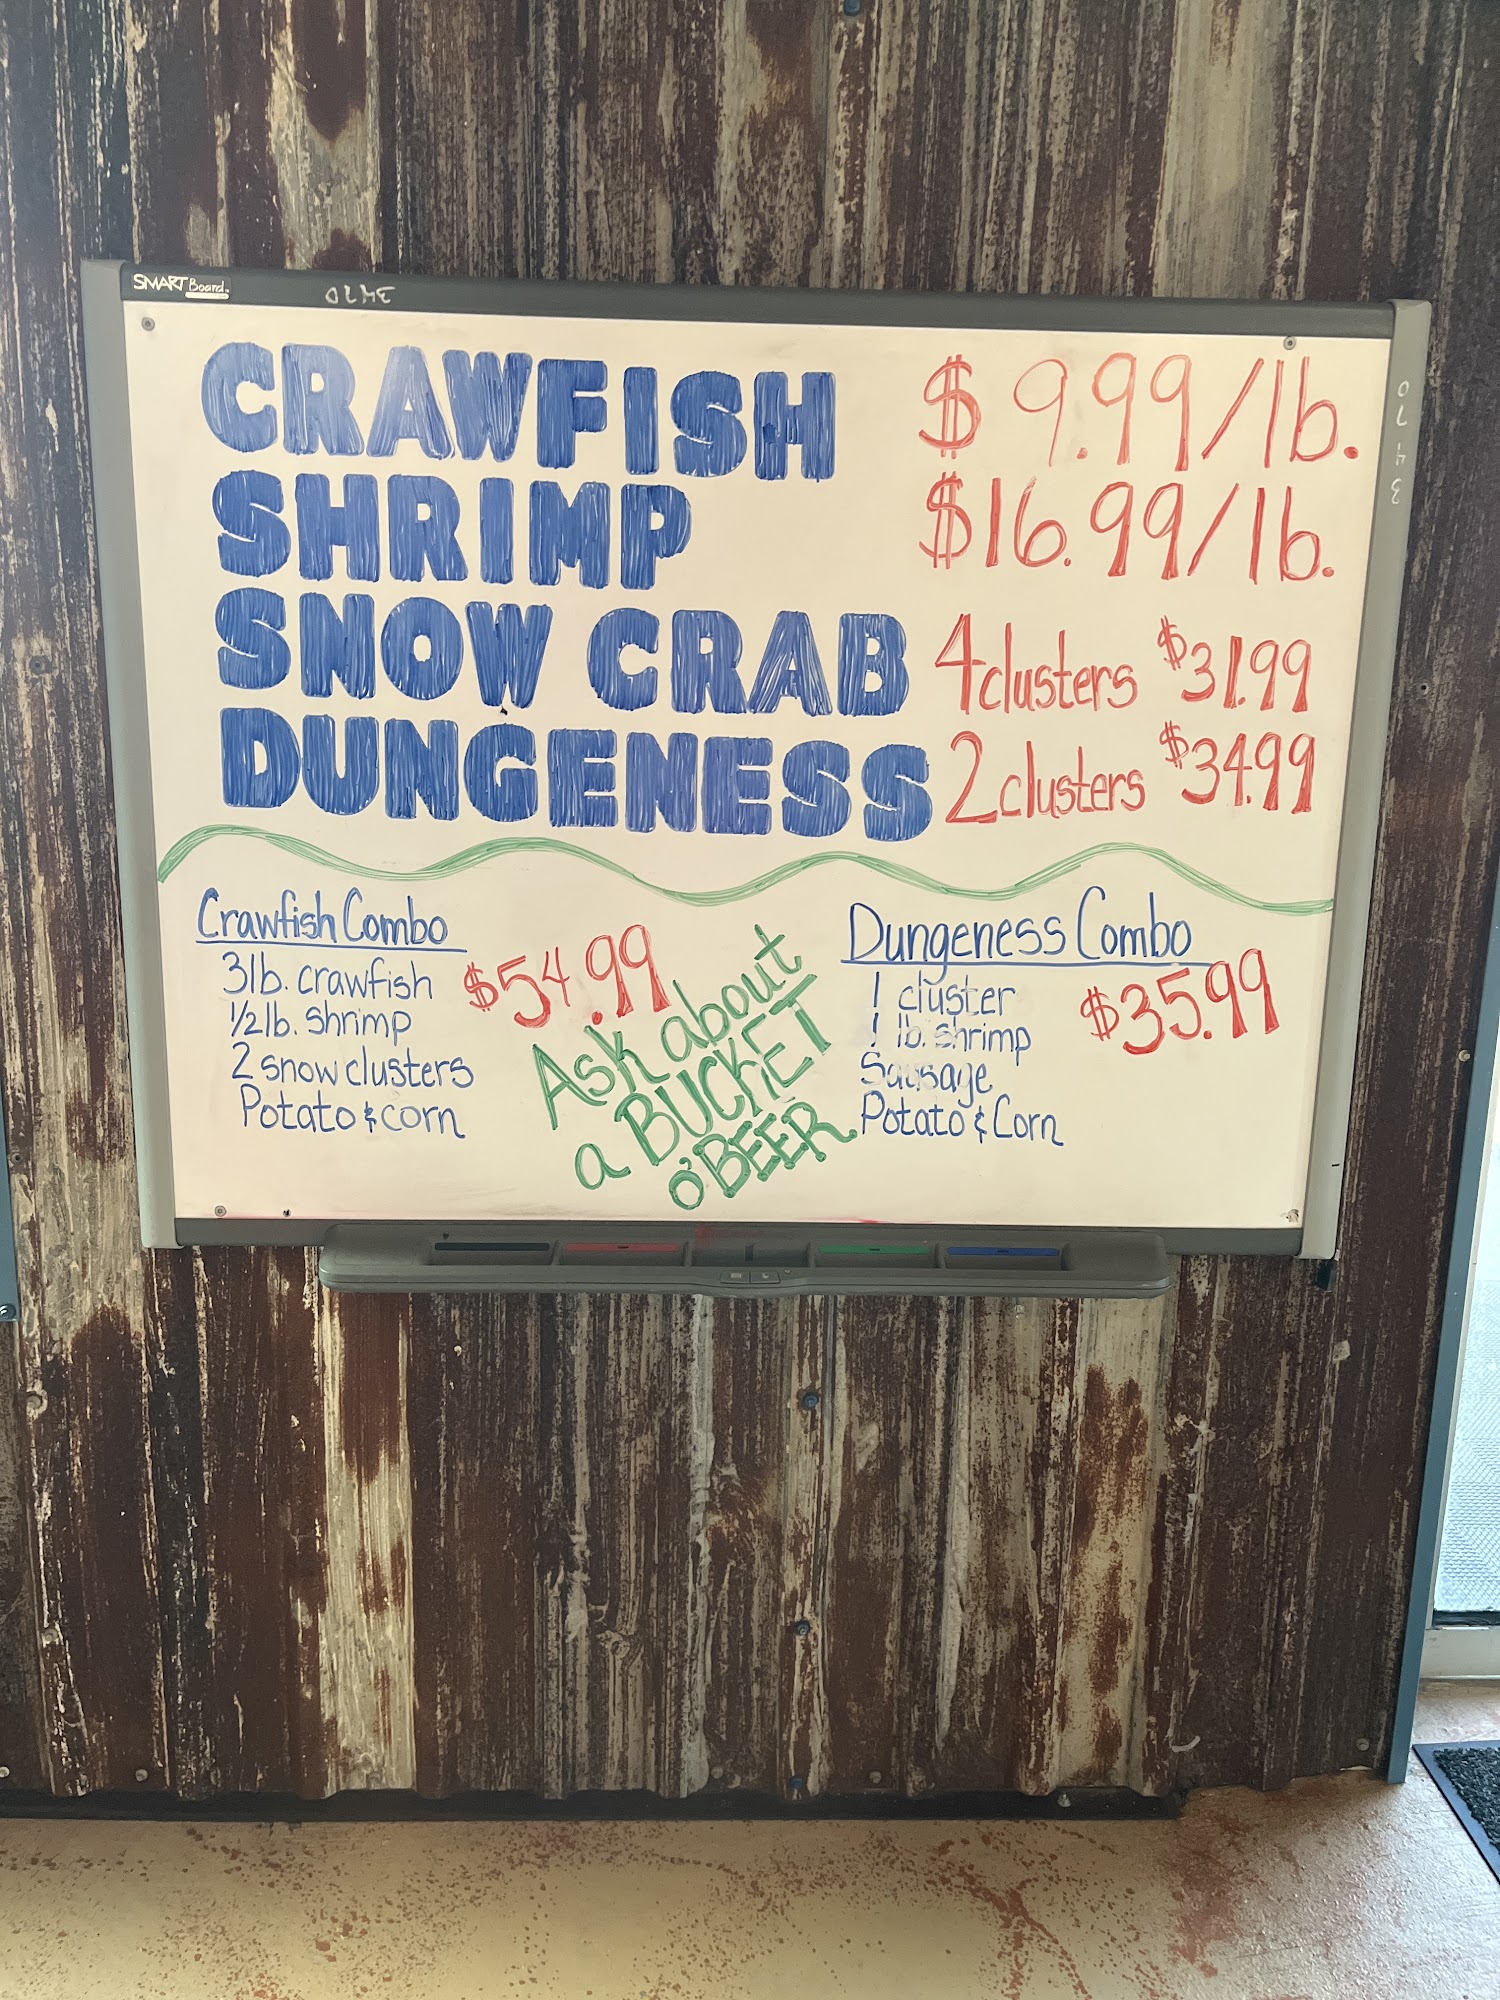 SMART Board
CRAWFISH $9.99/lb.
SHRIMP $16.99/lb.
SNOW CRAB 4 clusters $31.99
DUNGENESS 2 clusters $34.99
Crawfish Combo
3lb. crawfish $54.99
1/2 lb. shrimp
2 snow clusters
Potato & corn
Ask about
a BUCKET
o' BEER
Dungeness Combo
1 cluster $35.99
1 lb. shrimp
Sausage
Potato & Corn